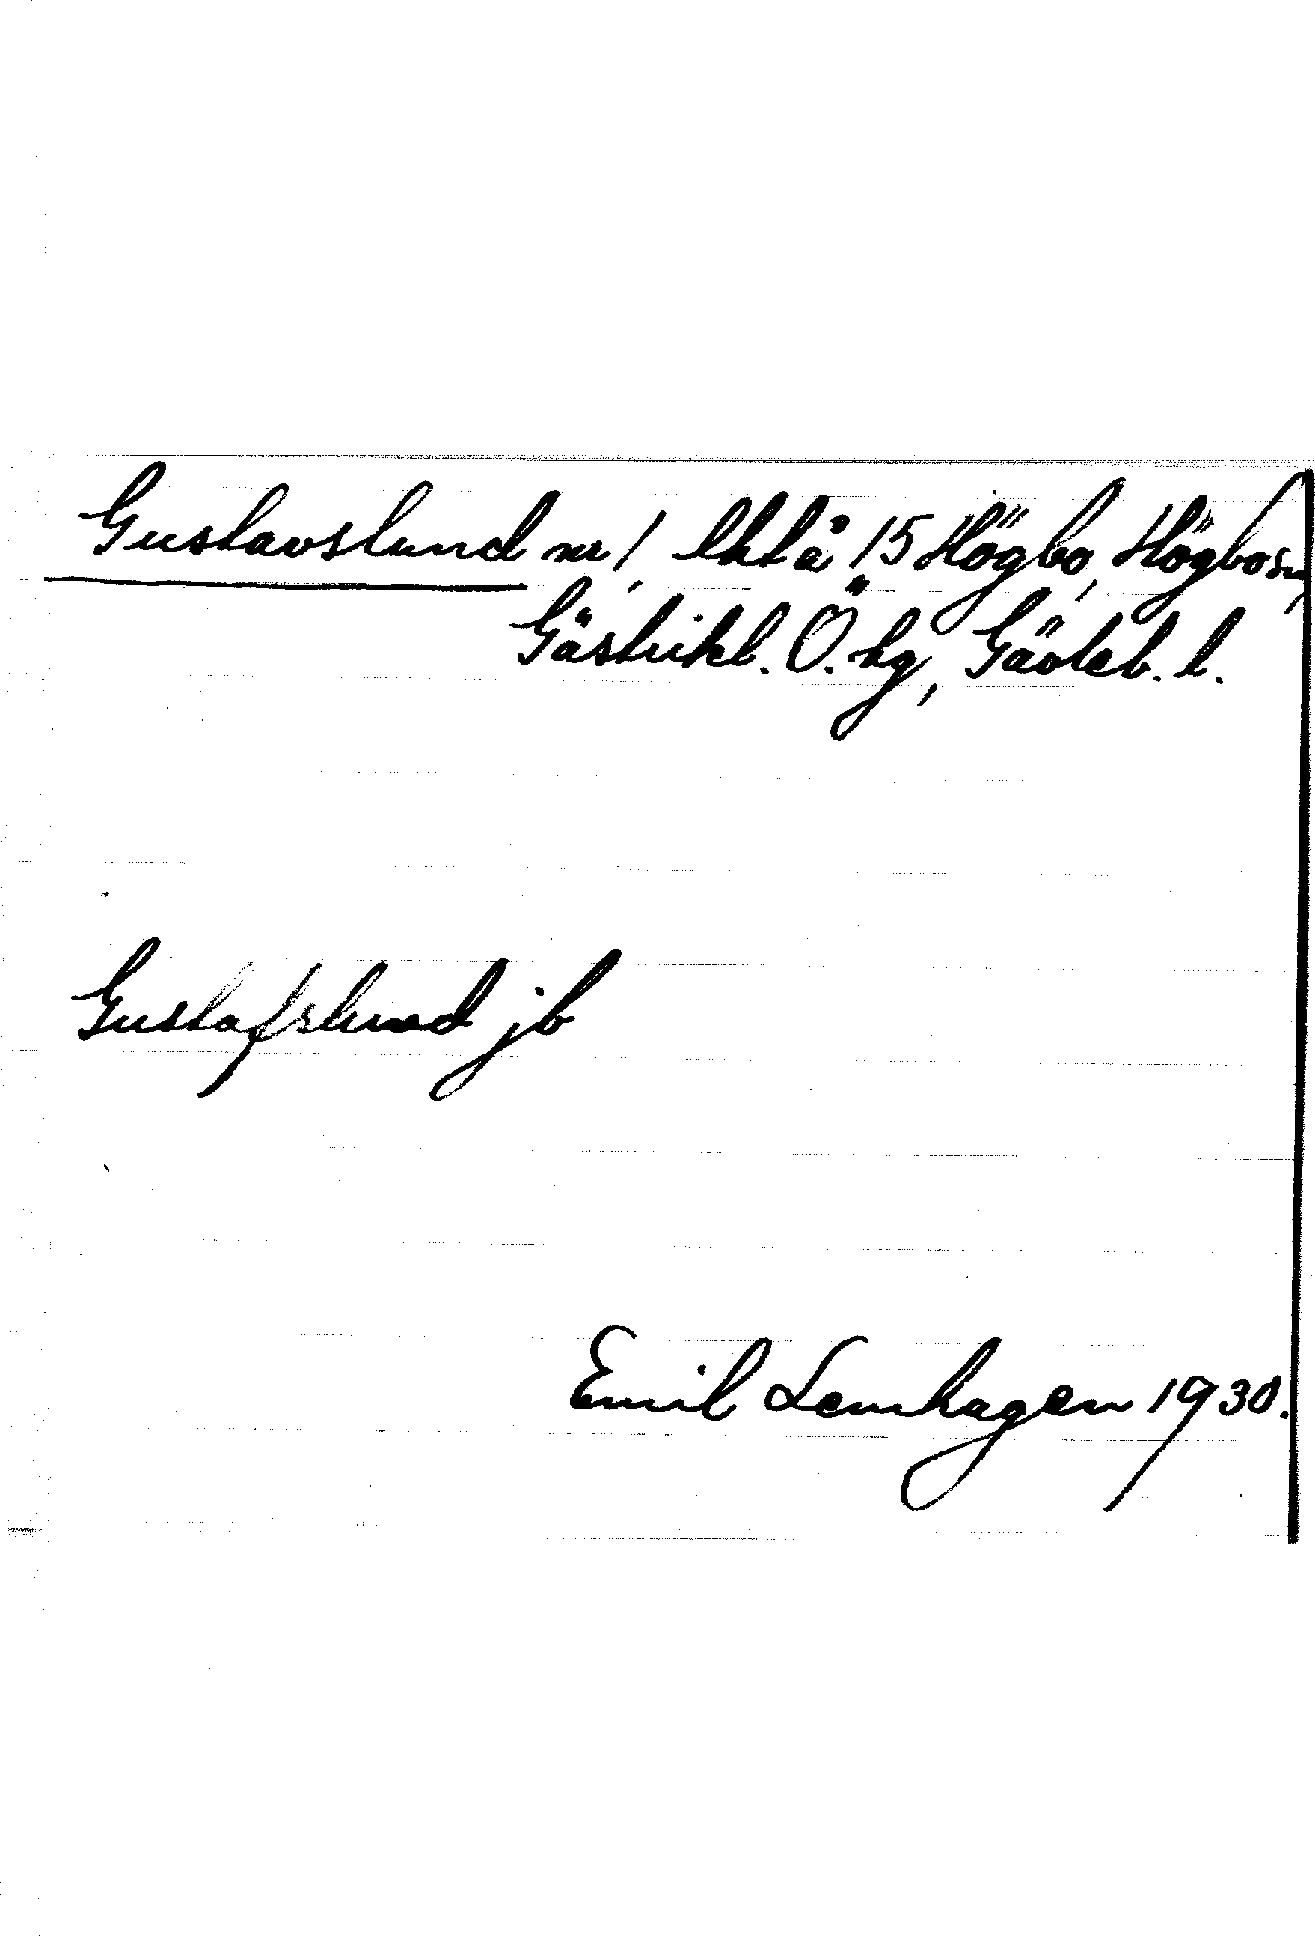 Gustavslund nr 1, lht å 15 Högbo, Högbo sn,
Gästrikl. Ö. hg, Gävleb. l.
Gustafslund jb
Emil Lemhagen 1930.